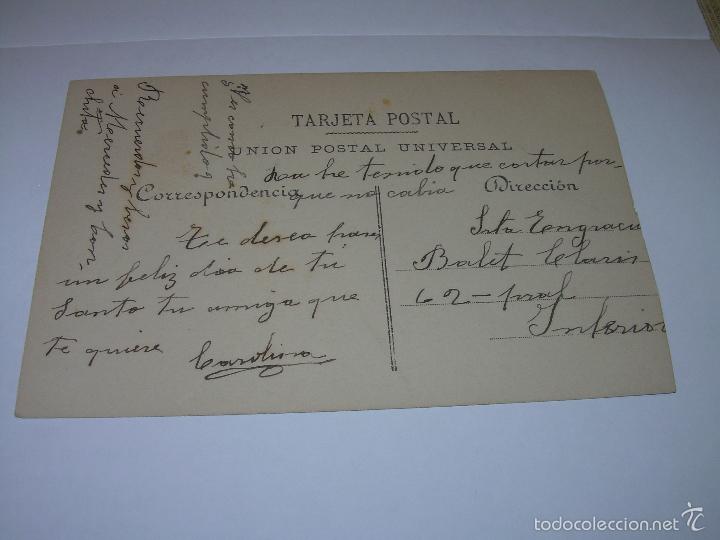 TARJETA POSTAL
UNION POSTAL UNIVERSAL
La he tenido que cortar por-
que no cabia
Correspondencia
Dirección
Te deseo pases
un feliz dia de tú
Santo tu amiga que
te quiere Carolina
Srta Engracia
Balet Claris
62-pral
Interior
Ves como he
cumplido y
Recuerdos y besos
a Mercedes y
todocoleccion.net
TC